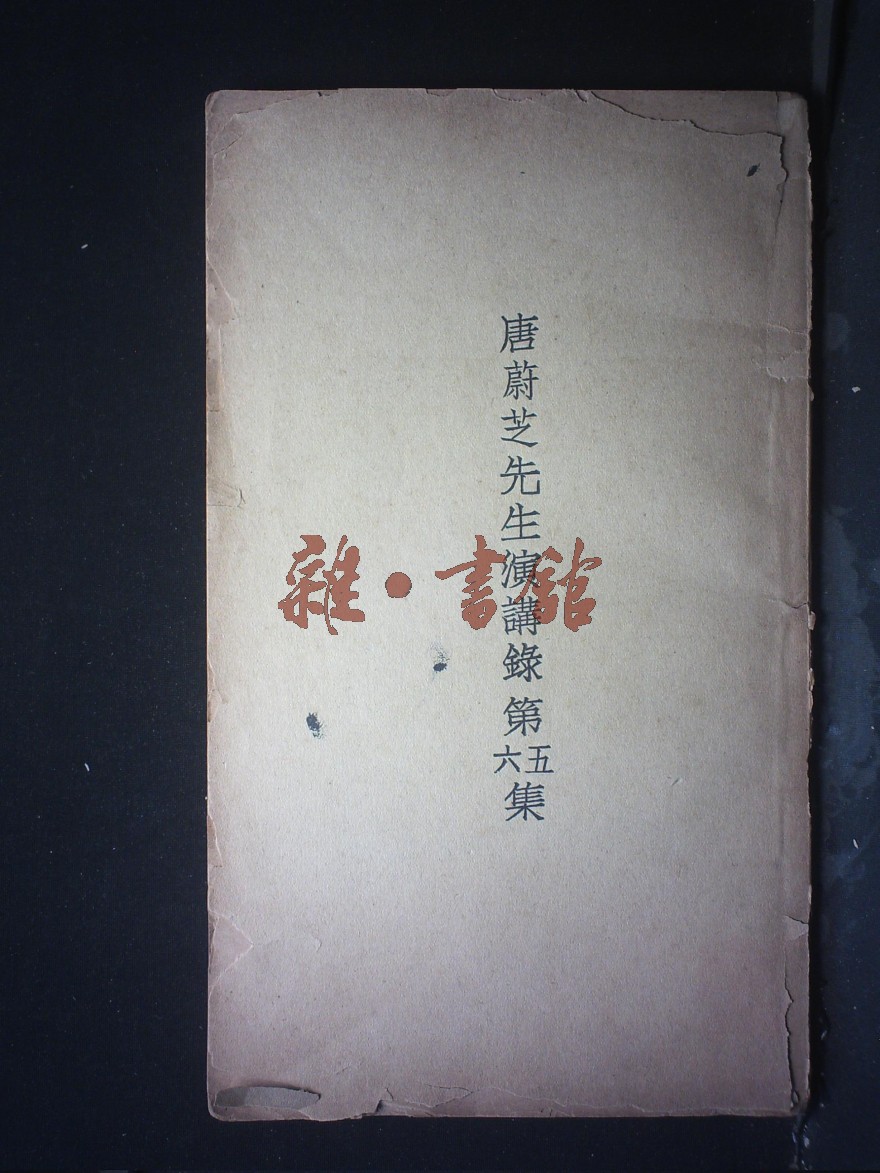 唐蔚芝先生演講錄第五六集
雜·書館